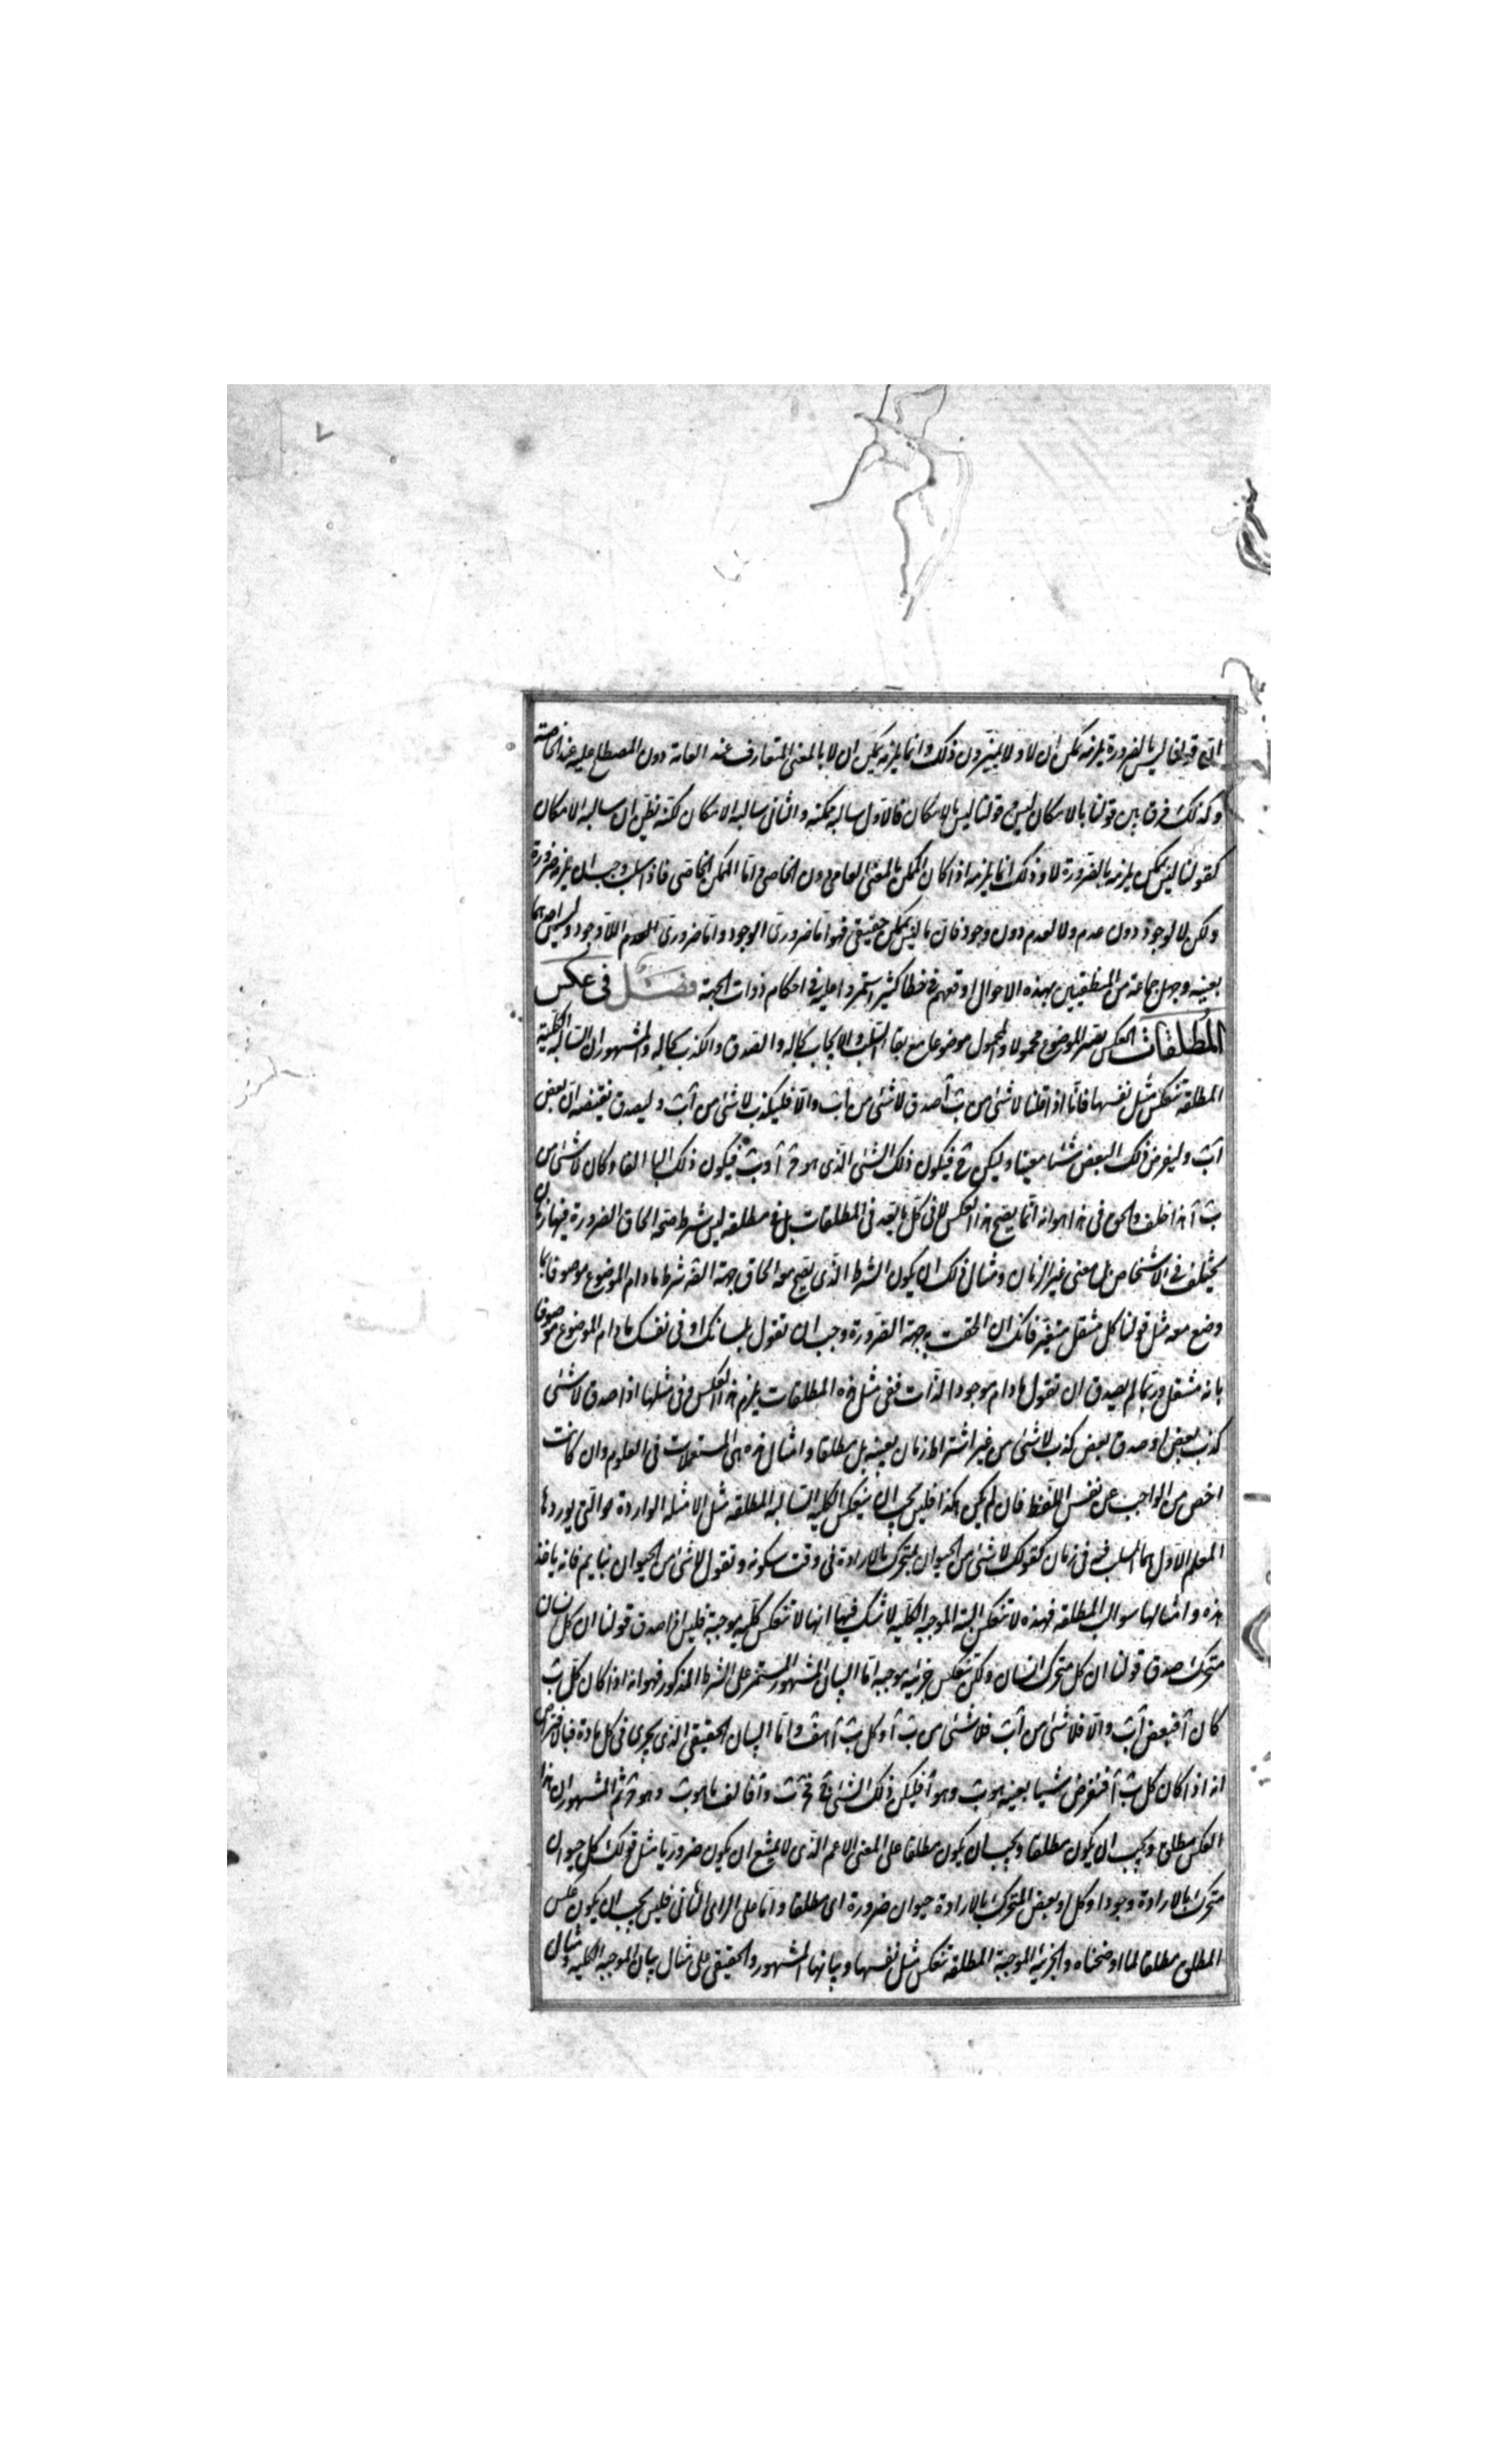 ان قولنا ليس بالضرورة يلزمه يمكن ان لا ولا يميزون ذلك وانما يلزمه يمكن ان لا بالمعنى المتعارف عند العامة دون المصطلح عليه عند الخاصة
وكذلك فرق بين قولنا بالامكان ليس وقولنا ليس بالامكان فالاول سالبة ممكنة والثانى سالبة الامكان لكنه يظن ان سالبة الامكان
كقولنا ليس يمكن يلزمه بالضرورة لا وذلك انما يلزمه اذا كان الممكن بالمعنى العامى دون الخاصى واما الممكن الخاصى فاذا سلب وجب ان يلزمه ضرورة
ولكن لا لوجود دون عدم ولا لعدم دون وجود فان ما ليس بممكن حقيقى فهو اما ضرورى الوجود واما ضرورى العدم اللاوجود وليس احدهما
بعينه وجهل جماعة من المنطقيين بهذه الاحوال اوقعهم فى خطا كثير استمروا عليه فى احكام ذوات الجهة فصل فى عكس
المطلقات العكس تصيير الموضوع محمولا والمحمول موضوعا مع بقاء السلب والايجاب بحاله والصدق والكذب بحاله والمشهور ان السالبة الكلية
المطلقة تنعكس مثل نفسها فانا اذا قلنا لا شئ من ب آ صدق لا شئ من آ ب والا فليكذب لا شئ من آ ب وليصدق نقيضه ان بعض
آ ب وليفرض ذلك البعض شيئا معينا وليكن ج فيكون ذلك الشئ الذى هو ج آ و ب فيكون ذلك البا الفا وكان لا شئ من
ب آ هذا خلف والحق فى هذا هو انه انما يصح هذا العكس لا فى كل ما يعد فى المطلقات بل فى مطلقة ليس شرط صحة الحاق الضرورة فيها زمان
يختلف فى الاشخاص بل معنى غير الزمان ومثال ذلك ان يكون الشرط الذى يصح معه الحاق جهة الضرورة شرط ما دام الموضوع موصوفا بما
وضع معه مثل قولنا كل منتقل متغير فانك ان الحقت به جهة الضرورة وجب ان تقول بلسانك او فى نفسك ما دام الموضوع موصوفا
بانه منتقل وربما لم يصدق ان تقول ما دام موجود الذات ففى مثل هذه المطلقات يلزم هذا العكس وفى مثلها اذا صدق لا شئ
كذب بعض او صدق بعض كذب لا شئ من غير اشتراط زمان بعينه بل مطلقا وامثال هذه هى المستعملات فى العلوم وان كانت
اخص من الواجب عن نفس اللفظ فان لم يكن هكذا فليس يجب ان ينعكس الكلية السالبة المطلقة مثل الامثلة الواردة هو التى يوردها
المعلم الاول مما السلب فيه فى زمان كقولك لا شئ من الحيوان بمتحرك بالارادة فى وقت سكونه وتقول لا شئ من الحيوان بنايم فانه ياخذ
هذه وامثالها سوالب مطلقة فهذه لا تنعكس البتة الموجبة الكلية لا شك فيها انها لا تنعكس كلية موجبة فليس اذا صدق قولنا ان كل انسان
متحرك صدق قولنا ان كل متحرك انسان ولكن تنعكس جزئية موجبة اما البيان المشهور المستمر على الشرط المذكور فهو انه اذا كان كل ب
كان آ فبعض آ ب والا فلا شئ من آ ب فلا شئ من ب آ وكل ب آ هف واما البيان الحقيقى الذى يجرى فى كل مادة فبالافتراض
انه اذا كان كل ب آ فنفرض شيا بعينه هو ب وهو آ فليكن ذلك الشئ ج فج ب و آ فالف ما هو ب وهو ج ثم المشهور ان هذا
العكس مطلق ويجب ان يكون مطلقا ويجب ان يكون مطلقا على المعنى الاعم الذى لا يمنع ان يكون ضروريا مثل قولك كل حيوان
متحرك بالارادة وجودا وكل او بعض المتحرك بالارادة حيوان ضرورة اى مطلقا واما على الراى الثانى فليس يجب ان يكون عكس
المطلق مطلقا لما اوضحناه والجزئية الموجبة المطلقة تنعكس مثل نفسها وبيانها المشهور والحقيقى على مثال بيان الموجبة الكلية ومثال